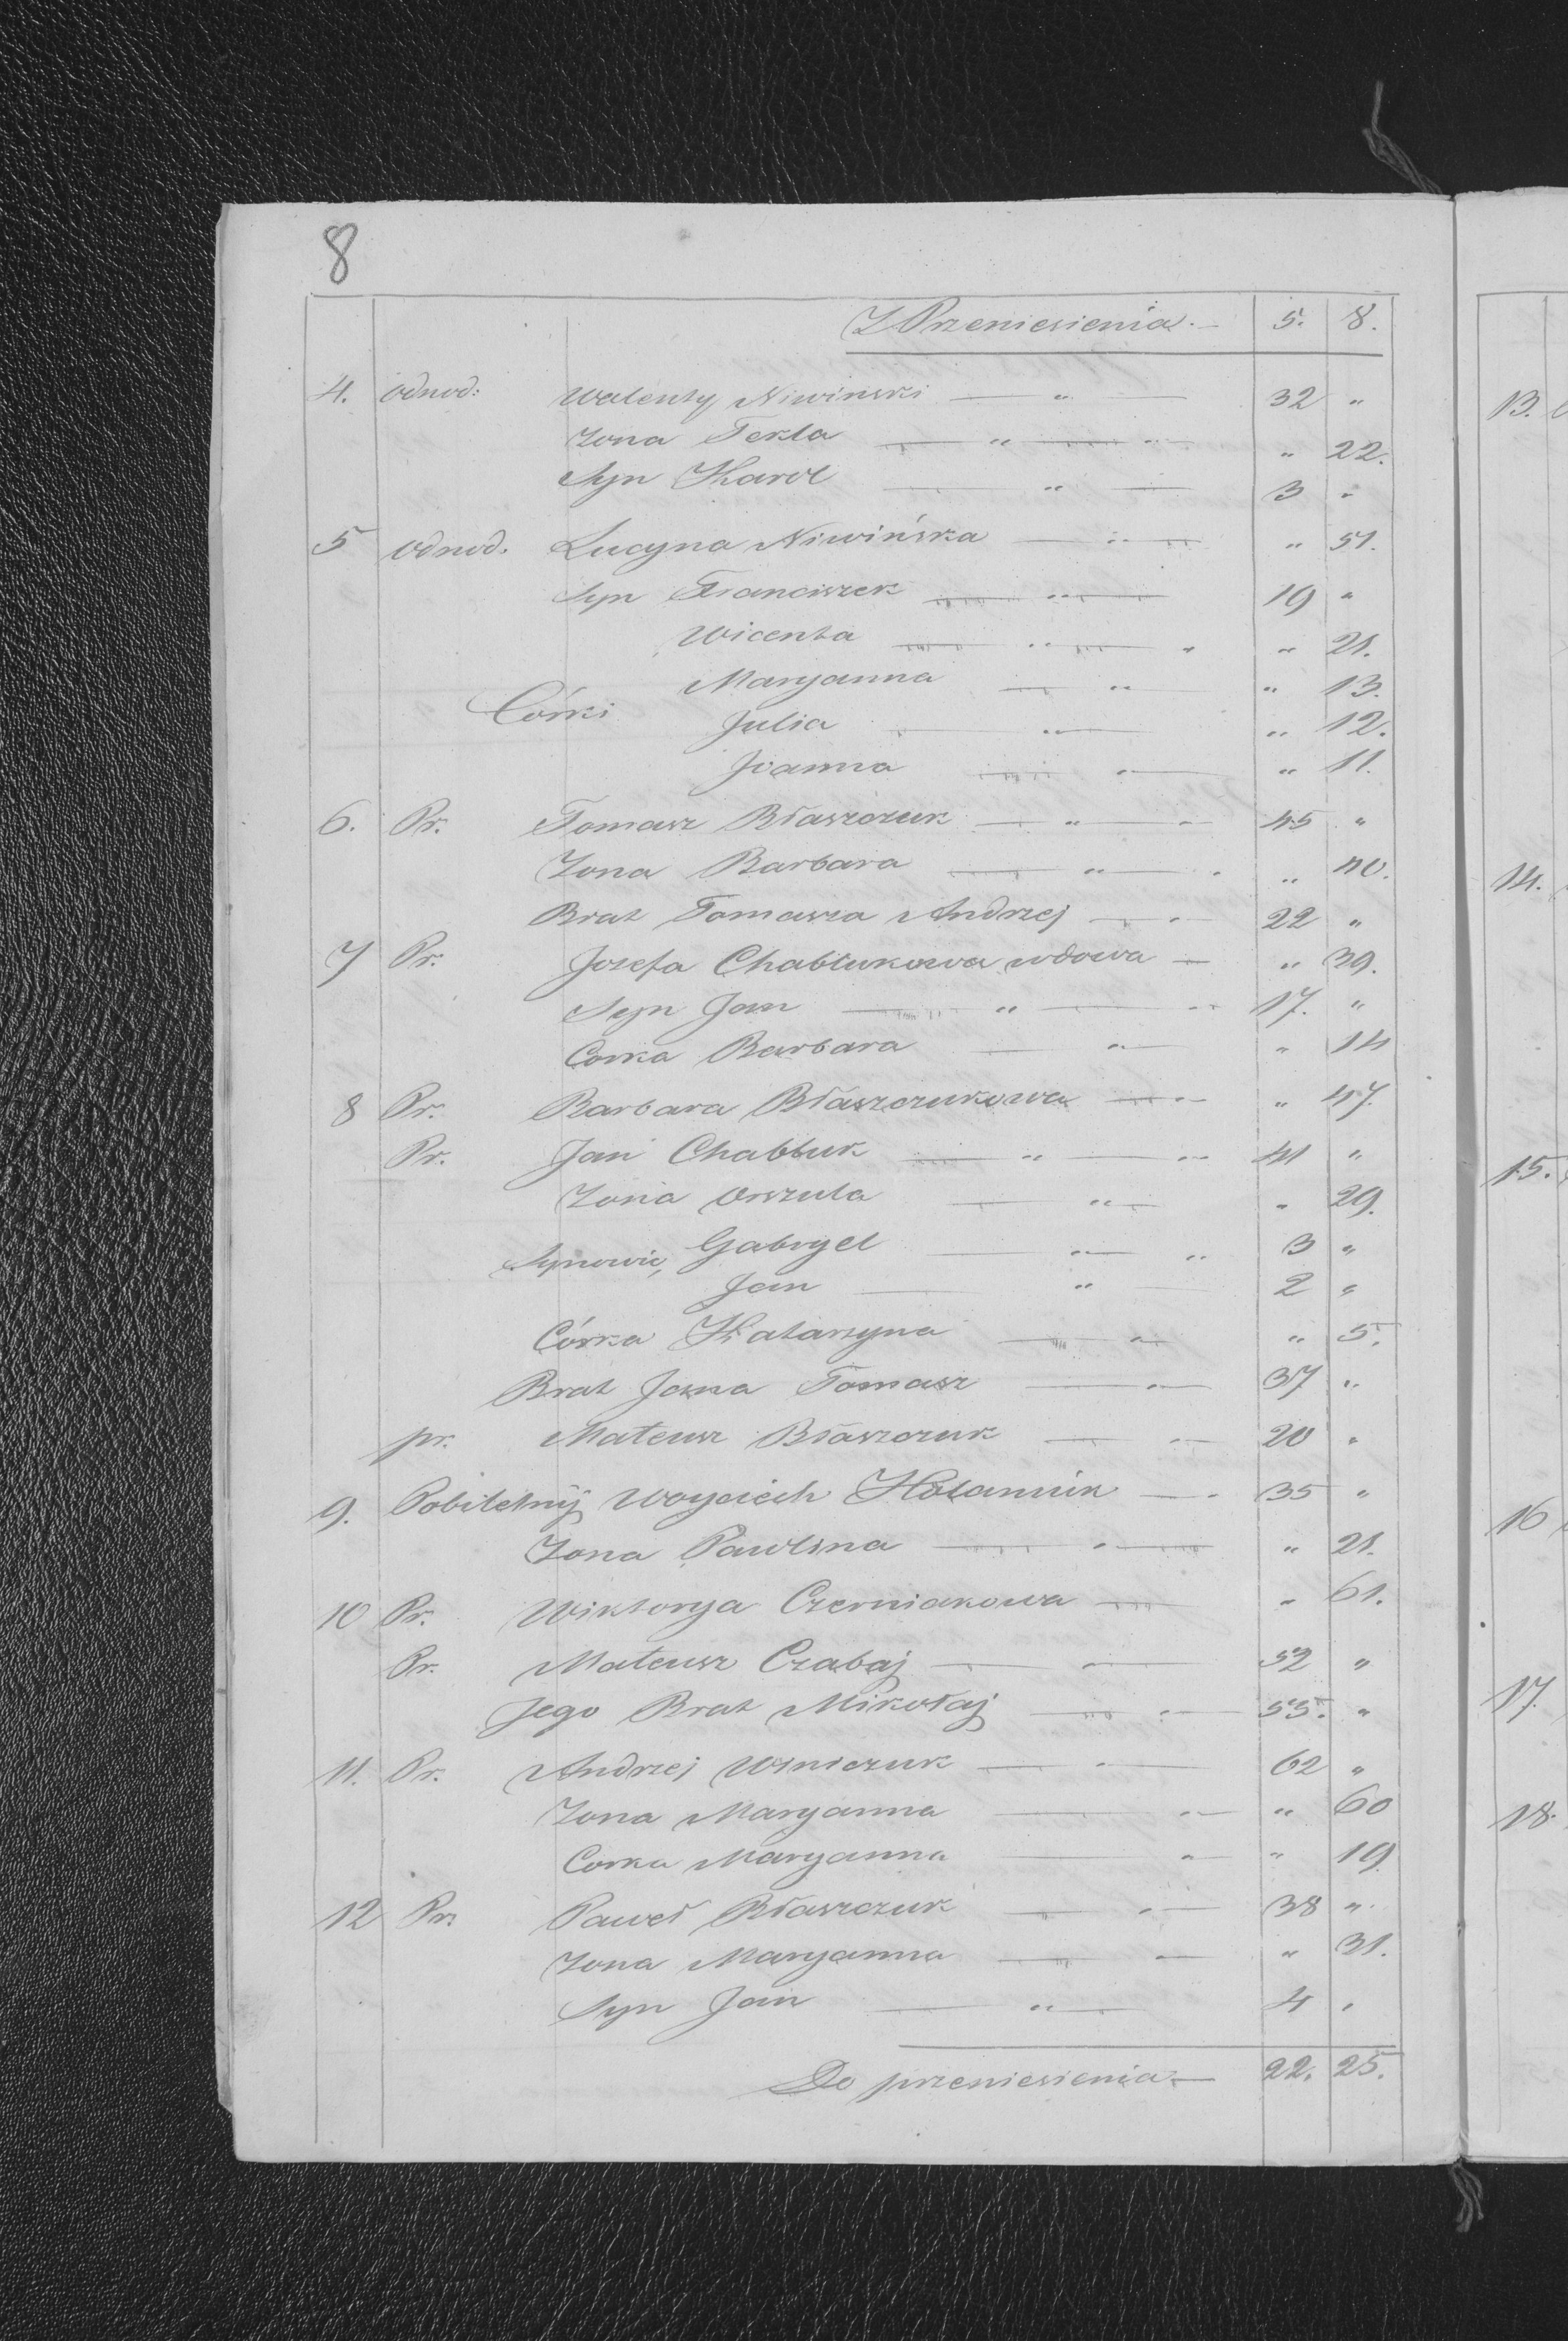 8
Z Przeniesienia.— 5. 8.
4. odnod: Walenty Niwinski — " — 32 "
Zona Tekla — " — " 22.
Syn Karol — " — 3 "
5 odnod. Lucyna Niwińska — " — " 51.
Syn Franciszek — " — 19 "
Wicenta — " — " 21.
Maryanna — " " 13.
Córki
Julia — " — " 12.
Joanna — " — " 11.
6. Pr. Tomasz Błaszczuk — " — 45 "
Zona Barbara — " — " 40.
Brat Tomasza Andrzej — " — 22 "
7 Pr. Jozefa Chabłukowa wdowa — " 39.
Syn Jan — " — " 17. "
Corka Barbara — " — " 14
8 Pr. Barbara Błaszczukowa — " — " 47.
Pr. Jan Chabłuk — " — " 41 "
Zona Urszula — " — " 29.
Gabryel — " — " 3 "
Synowie,
Jan — " — 2 "
Córka Katarzyna — " — " 5.
Brat Jana Tomasz — " — 37 "
pr. Mateusz Błaszczuk — " — 20 "
9. Pobiletnÿ Woyciech Hołamiuk — " 35 "
Zona Pawlina — " — " 21.
10 Pr. Wiktorya Czerniakowa — " 61.
Pr. Mateusz Czabaj — " — 52 "
Jego Brat Mikołaj — " — 55. "
11. Pr. Andrzej Winiczuk — " — 62 "
Zona Maryanna — " — " 60
Corka Maryanna — " — " 19.
12 Pr. Paweł Błaszczuk — " — 38 "
Zona Maryanna — " — " 31.
Syn Jan — " — 4 "
Do przeniesienia — 22. 25.
13.
14.
15.
16
17.
18.